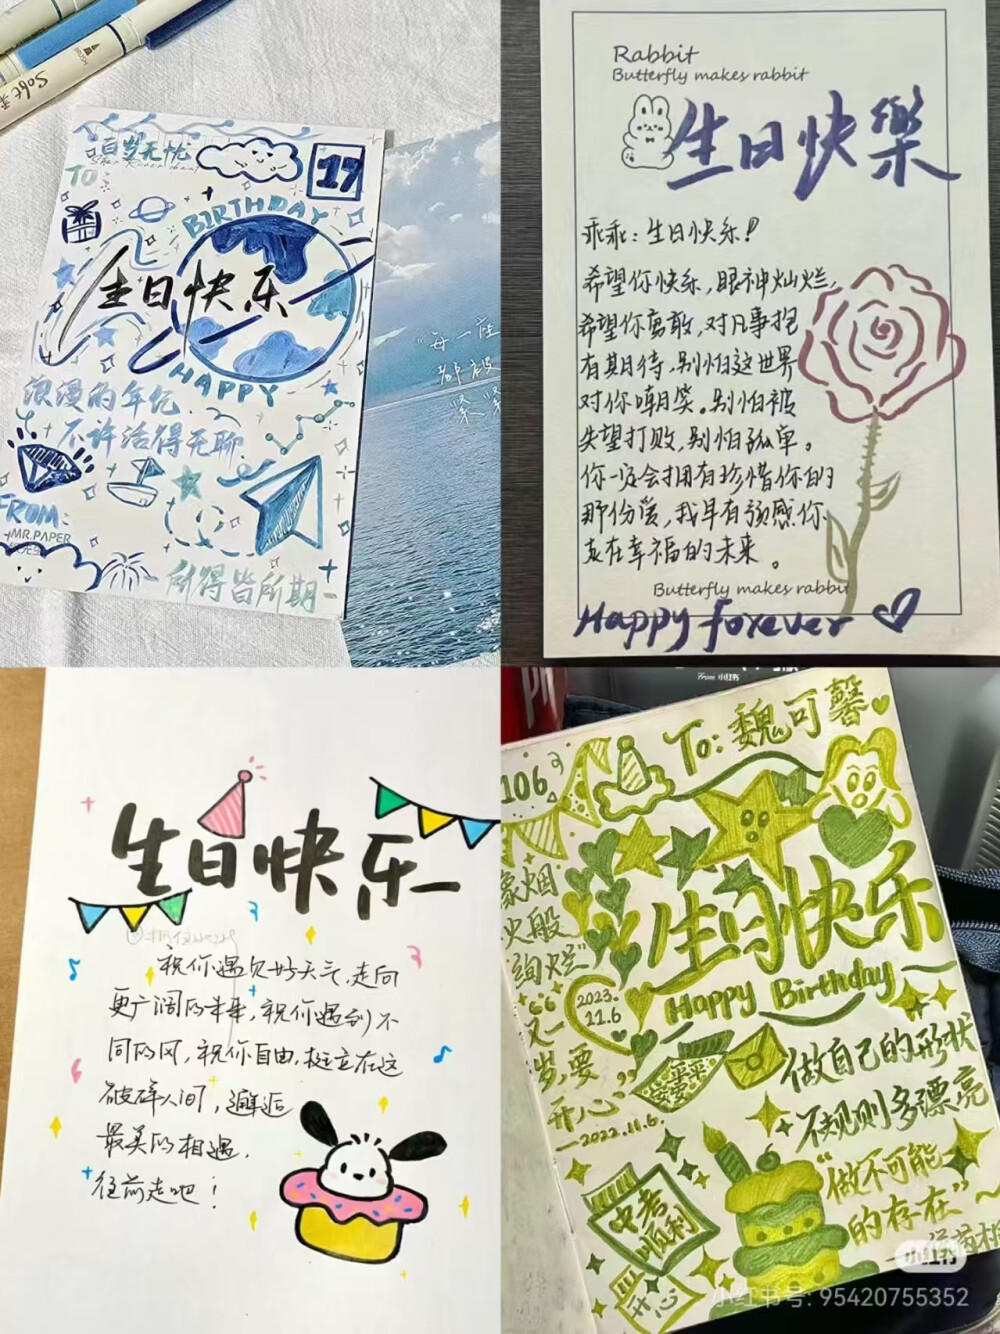 Soft
百岁无忧
TO:
17
BIRTHDAY
生日快乐
HAPPY
浪漫的年纪
不许活得无聊
FROM:
MR.PAPER
所得皆所期
"每一座
Rabbit
Butterfly makes rabbit
生日快樂
乖乖:生日快乐!
希望你快乐,眼神灿烂,
希望你勇敢,对凡事抱
有期待,别怕这世界
对你嘲笑。别怕被
失望打败,别怕孤单。
你一定会拥有珍惜你的
那份爱,我早有预感你
在幸福的未来。
Butterfly makes rabbit
Happy forever
生日快乐
祝你遇见好天气,走向
更广阔的未来,祝你遇到不
同的风,祝你自由,挺立在这
破碎人间,邂逅
最美的相遇.
往前走吧!
From 小红书
106
To: 魏可馨
像烟
火般
绚烂
生日快乐
Happy Birthday
2023.
11.6
"又一
岁,要
开心"
—2022.11.6.
平平
安安
做自己的形状
不规则多漂亮
"做不可能
的存在"
中考
顺利
开心
小红书
小红书号: 95420755352